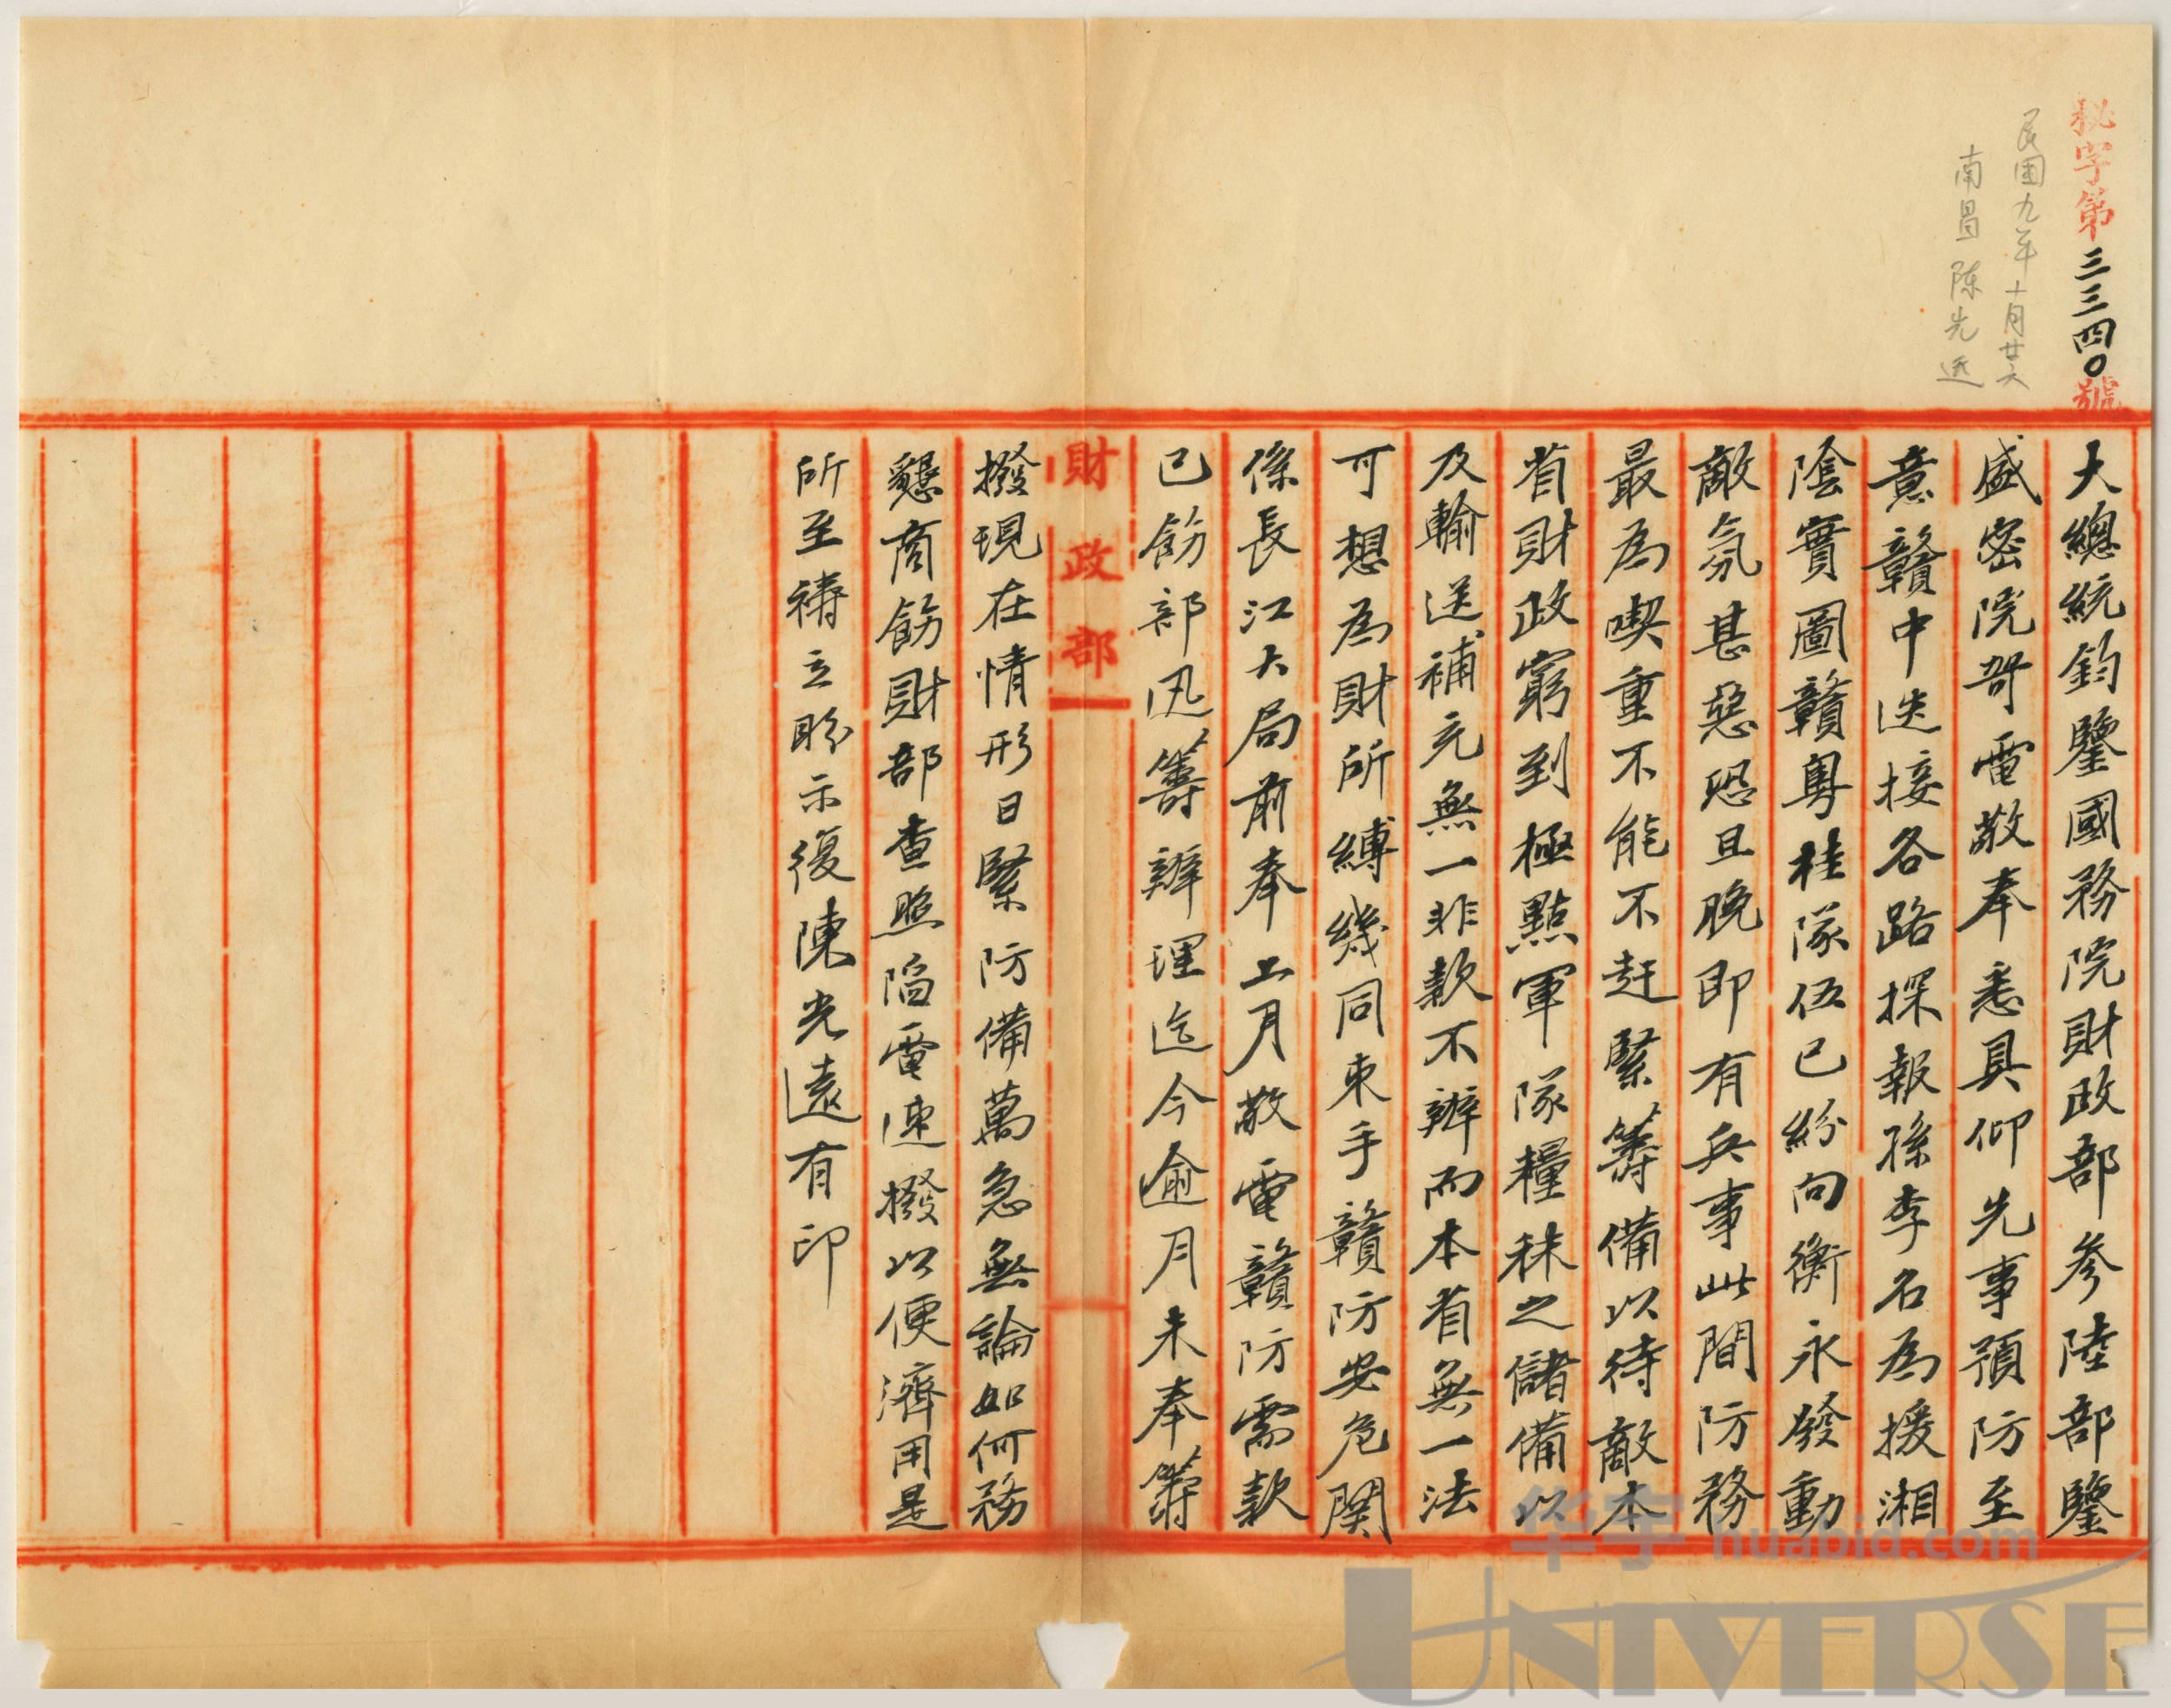 秘字第三三四〇號
民国九年十月廿六
南昌 陈光远
大總統鈞鑒國務院財政部參陸部鑒
盛密院哿電敬奉悉具仰先事預防至
意贛中迭接各路探報孫李名為援湘
陰實圖贛粵桂隊伍已紛向衡永發動
敵氛甚惡恐旦晚即有兵事此間防務
最為喫重不能不赶緊籌備以待敵本
省財政窮到極點軍隊糧秣之儲備以
及輸送補充無一非款不辦而本省無一法
可想為財所縛幾同束手贛防安危関
係長江大局前奉上月敬電贛防需款
已飭部迅籌辦理迄今逾月未奉籌
財政部
撥現在情形日緊防備萬急無論如何務
懇商飭財部查照陷電速撥以便濟用是
所至禱立盼示復陳光遠有印
华宇 huabid.com
UNIVERSE